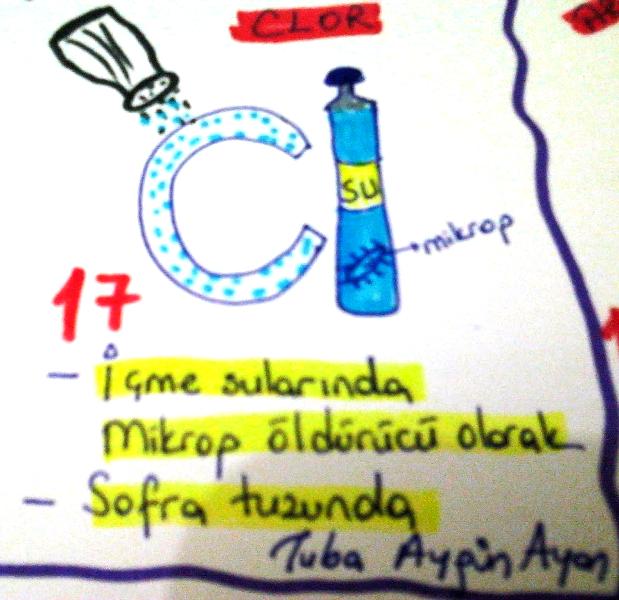 CLOR
Cl
SU
mikrop
17
- İçme sularında
Mikrop öldürücü olarak
- Sofra tuzunda
Tuba Aygün Ayan